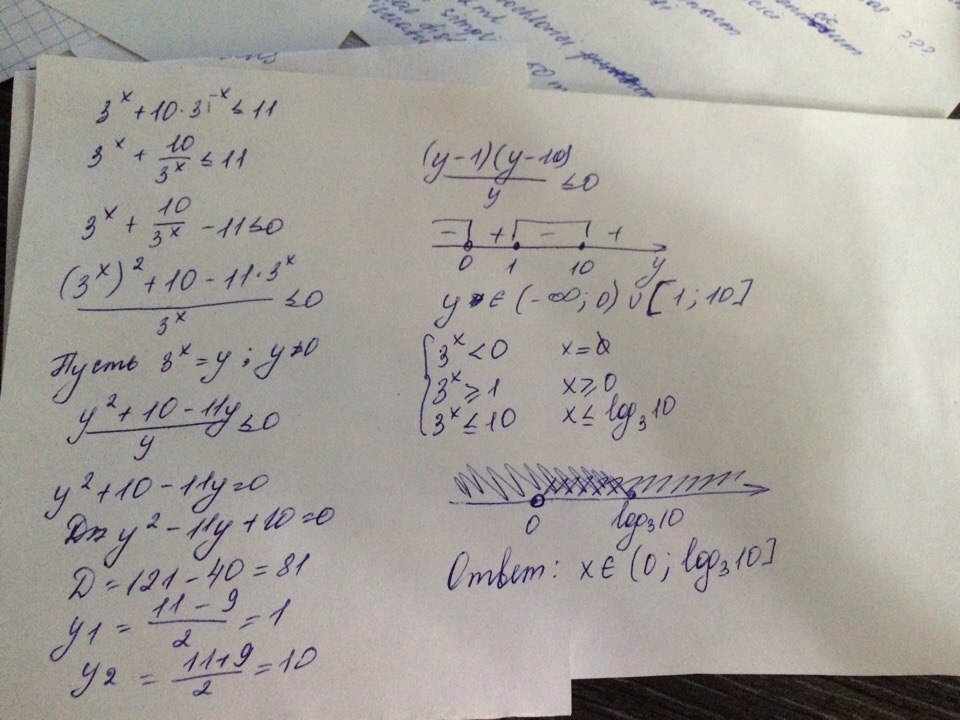 3^x + 10·3^-x ≤ 11
3^x + 10/3^x ≤ 11
3^x + 10/3^x - 11 ≤ 0
((3^x)^2 + 10 - 11·3^x)/3^x ≤ 0
Пусть 3^x = y; y ≠ 0
(y^2 + 10 - 11y)/y ≤ 0
y^2 + 10 - 11y = 0
y^2 - 11y + 10 = 0
D = 121 - 40 = 81
y1 = (11 - 9)/2 = 1
y2 = (11 + 9)/2 = 10
(y - 1)(y - 10)/y ≤ 0
- + - +
0 1 10 y
y ∈ (-∞; 0) ∪ [1; 10]
3^x < 0 x = 0
3^x ≥ 1 x ≥ 0
3^x ≤ 10 x ≤ log₃10
0 log₃10
Ответ: x ∈ (0; log₃10]
???